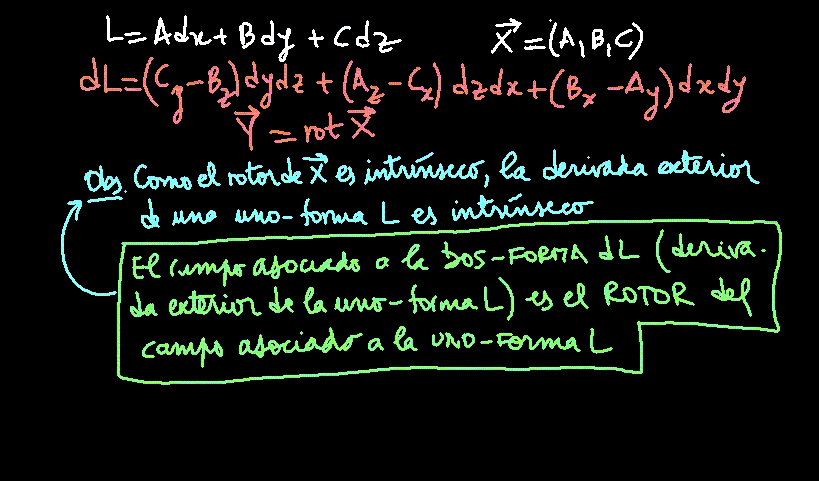 L = Adx + Bdy + Cdz    X⃗ = (A, B, C)
dL = (C_y − B_z) dydz + (A_z − C_x) dzdx + (B_x − A_y) dxdy
Y⃗ = rot X⃗
Obs. Como el rotor de X⃗ es intrínseco, la derivada exterior
de una uno-forma L es intrínseco
El campo asociado a la DOS-FORMA dL (deriva-
da exterior de la uno-forma L) es el ROTOR del
campo asociado a la UNO-FORMA L